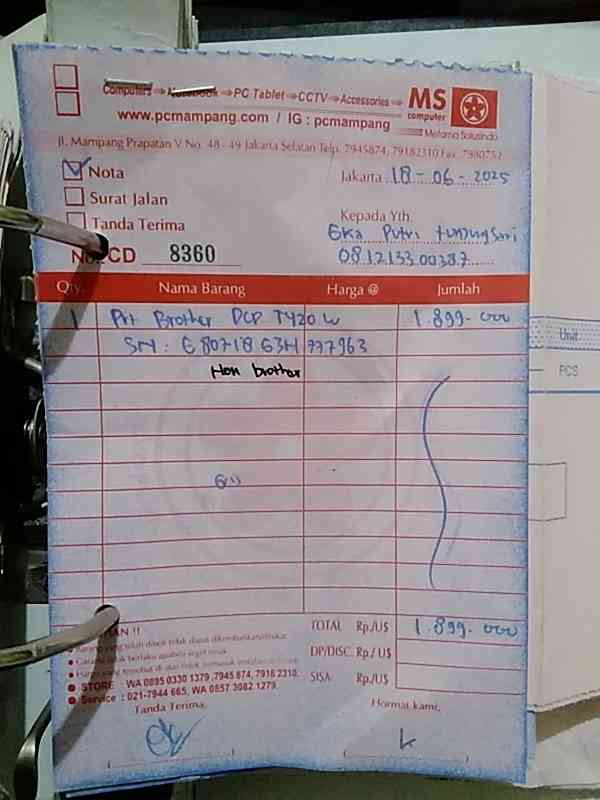 Computers ⇒ Notebook ⇒ PC Tablet ⇒ CCTV ⇒ Accessories ⇒ MS computer
www.pcmampang.com / IG : pcmampang
Metama Solusindo
Jl. Mampang Prapatan V No. 48 - 49 Jakarta Selatan Telp. 7945874, 79182310 Fax. 7980752
Nota
Jakarta 18-06-2025
Surat Jalan
Tanda Terima
Kepada Yth.
Eka Putri
081213300387
No. CD 8360
Qty. Nama Barang Harga @ Jumlah
1 Prt Brother DCP T420W 1.899.000
SN : E80718G3H777963
Non brother
TOTAL Rp./U$ 1.899.000
DP/DISC. Rp./U$
SISA Rp./U$
Barang yang telah dibeli tidak dapat dikembalikan/ditukar
Garansi tidak berlaku apabila segel rusak
Harga yang tersebut di atas tidak termasuk
STORE : WA 0895 0330 1379, 7945 874, 7918 2310
Service : 021-7944 665, WA 0857 3082 1279
Tanda Terima, Hormat kami,
Unit
PCS